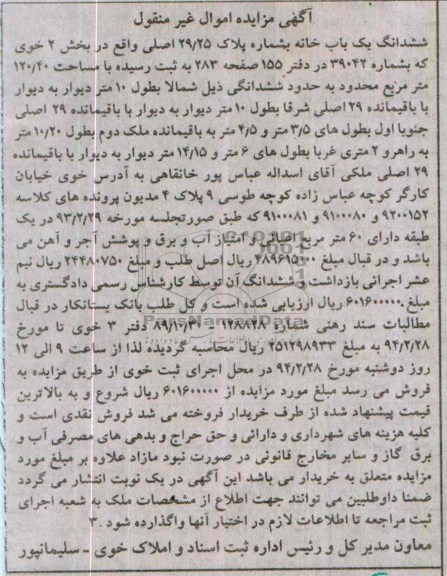 آگهی مزایده اموال غیر منقول
ششدانگ یک باب خانه بشماره پلاک ۲۹/۲۵ اصلی واقع در بخش ۲ خوی
که بشماره ۳۹۰۴۲ در دفتر ۱۵۵ صفحه ۲۸۳ به ثبت رسیده با مساحت ۱۲۰/۴۰
متر مربع محدود به حدود ششدانگی ذیل شمالا بطول ۱۰ متر دیوار به دیوار
با باقیمانده ۲۹ اصلی شرقا بطول ۱۰ متر دیوار به دیوار با باقیمانده ۲۹ اصلی
جنوبا اول بطول های ۳/۵ متر و ۴/۵ متر به باقیمانده ملک دوم بطول ۱۰/۲۰
به راهرو ۲ متری غربا بطول های ۶ متر و ۱۴/۱۵ متر دیوار به دیوار با باقیمانده
۲۹ اصلی ملکی آقای اسداله عباس پور خانقاهی به آدرس خوی خیابان
کارگر کوچه عباس زاده کوچه طوسی ۹ پلاک ۴ مدیون پرونده های کلاسه
۹۲۰۰۱۵۲ و ۹۱۰۰۰۸۰ و ۹۱۰۰۰۸۱ که طبق صورتجلسه مورخه ۹۳/۲/۲۹ در یک
طبقه دارای ۶۰ متر مربع اعیانی و امتیاز آب و برق و پوشش آجر و آهن می
باشد و در قبال مبلغ ۴۸۹۶۱۵۰۰۰ ریال اصل طلب و مبلغ ۲۴۴۸۰۷۵۰ ریال نیم
عشر اجرائی بازداشت و ششدانگ آن توسط کارشناس رسمی دادگستری به
مبلغ ۶۰۱۶۰۰۰۰۰ ریال ارزیابی شده است و کل طلب بانک بستانکار در قبال
مطالبات سند رهنی شماره ۱۲۸۸۲۸ - ۸۹/۱۰/۳۰ دفتر ۳ خوی تا مورخ
۹۴/۲/۲۸ به مبلغ ۲۵۱۲۹۸۹۳۳ ریال محاسبه گردیده لذا از ساعت ۹ الی ۱۲
روز دوشنبه مورخ ۹۴/۲/۲۸ در محل اجرای ثبت خوی از طریق مزایده به
فروش می رسد مبلغ مورد مزایده از ۶۰۱۶۰۰۰۰۰ ریال شروع و به بالاترین
قیمت پیشنهاد شده از طرف خریدار فروخته می شد فروش نقدی است و
کلیه هزینه های شهرداری و دارائی و حق حراج و بدهی های مصرفی آب و
برق گاز و سایر مخارج قانونی در صورت نبود مازاد علاوه بر مبلغ مورد
مزایده متعلق به خریدار می باشد این آگهی در یک نوبت انتشار می گردد
ضمنا داوطلبین می توانند جهت اطلاع از مشخصات ملک به شعبه اجرای
ثبت مراجعه تا اطلاعات لازم در اختیار آنها واگذارده شود .۳
معاون مدیر کل و رئیس اداره ثبت اسناد و املاک خوی - سلیمانپور